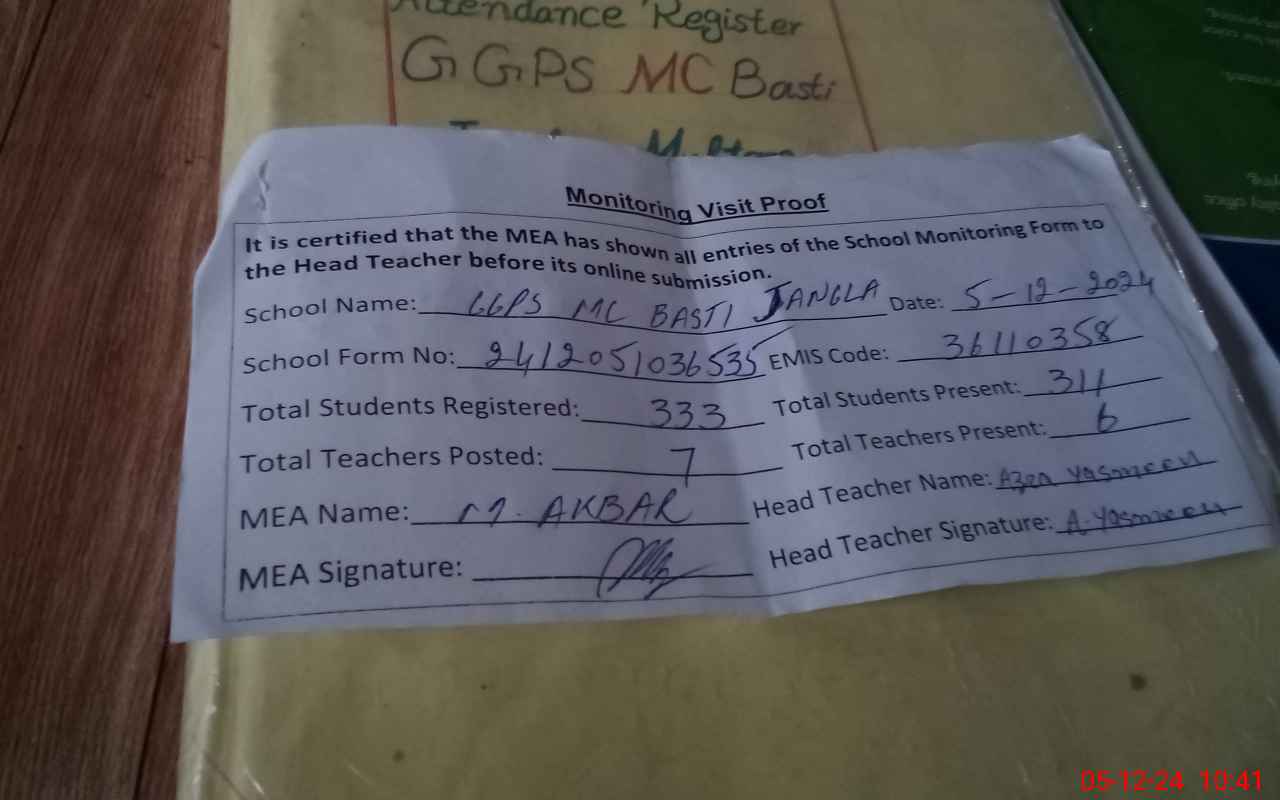 Attendance Register
GGPS MC Basti
Monitoring Visit Proof
It is certified that the MEA has shown all entries of the School Monitoring Form to
the Head Teacher before its online submission.
School Name: GGPS MC BASTI JANGLA Date: 5-12-2024
School Form No: 2412051036535 EMIS Code: 36110358
Total Students Registered: 333 Total Students Present: 311
Total Teachers Posted: 7 Total Teachers Present: 6
MEA Name: M. AKBAR Head Teacher Name: Azra Yasmeen
MEA Signature: Head Teacher Signature: A. Yasmeen
05-12-24 10:41